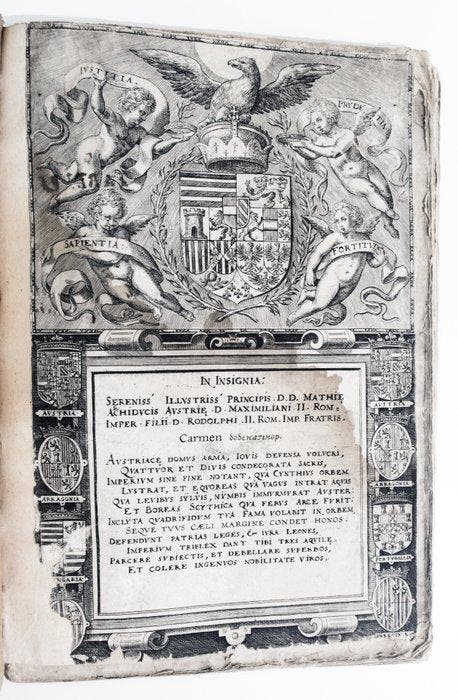 IVSTITIA.
PRVDE TIA
SAPIENTIA:
FORTITVD
IN INSIGNIA:
SERENISS ILLVSTRISS PRINCIPIS D.D. MATHIE
ACHIDVCIS AVSTRIE D. MAXIMILIANI II. ROM:
IMPER. FILII D. RODOLPHI .II. ROM. IMP. FRATRIS.
Carmen
AVSTRIACE DOMVS ARMA, IOVIS DEFENSA VOLVCRI,
QVATTVOR ET DIVIS CONDECORATA SACRIS,
IMPERIVM SINE FINE NOTANT, QVA CYNTHIVS ORBEM
LVSTRAT, ET EQVOREAS QVA VAGVS INTRAT AQVAS
QVA LENIBVS SYLVIS, NIMBIS IMMVRMVRAT AVSTER:
ET BOREAS SCYTHICA QVA FERVS ARCE FVRIT.
INCLYTA QVADRIFIDVM TVA FAMA VOLABIT IN ORBEM,
SEQVE TVVS CÆLI MARGINE CONDET HONOS.
DEFENDVNT PATRIAS LEGES, & IVRA LEONES,
IMPERIVM TRIPLEX DANT TIBI TRES AQVILE.
PARCERE SVBIECTIS, ET DEBELLARE SVPERBOS,
ET COLERE INGENVOS NOBILITATE VIROS.
AVSTRIA
AVSTRIA
ARRAGONIA
ARRAGONIA
NGARIA
PORTVGALLIA